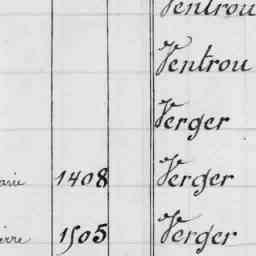 Ventrou
Ventrou
Verger
1408 Verger
1505 Verger